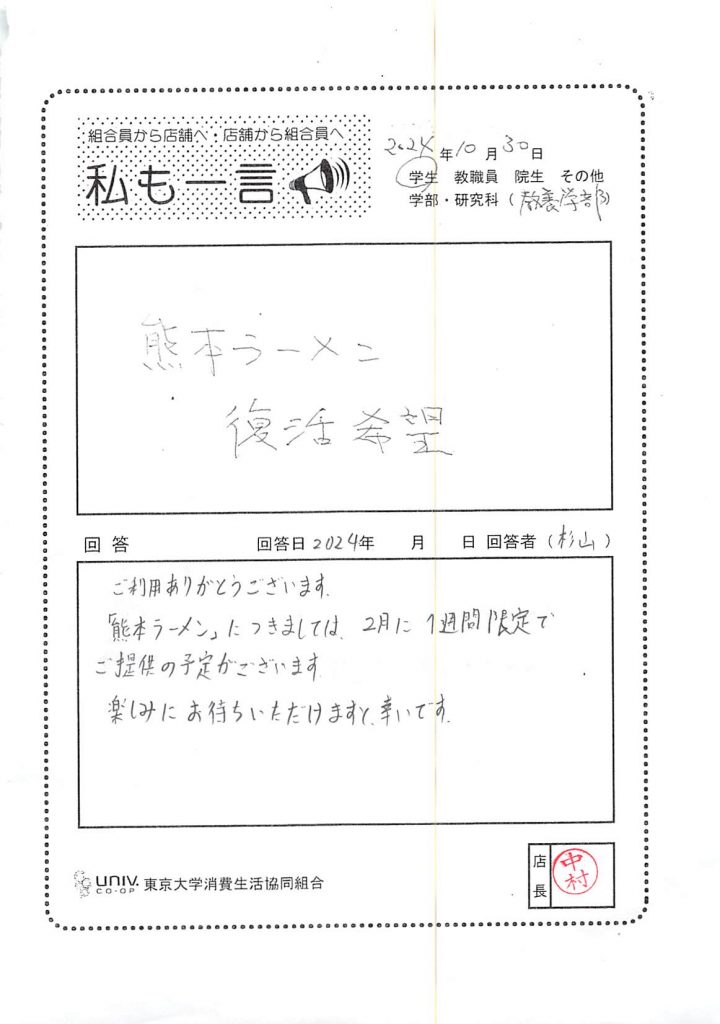 組合員から店舗へ・店舗から組合員へ
私も一言
2024年10月30日
学生 教職員 院生 その他
学部・研究科（教養学部）
熊本ラーメン
復活希望
回答 回答日2024年 月 日 回答者（杉山）
ご利用ありがとうございます。
「熊本ラーメン」につきましては、2月に1週間限定で
ご提供の予定がございます。
楽しみにお待ちいただけますと、幸いです。
UNIV. CO-OP 東京大学消費生活協同組合
店長 中村